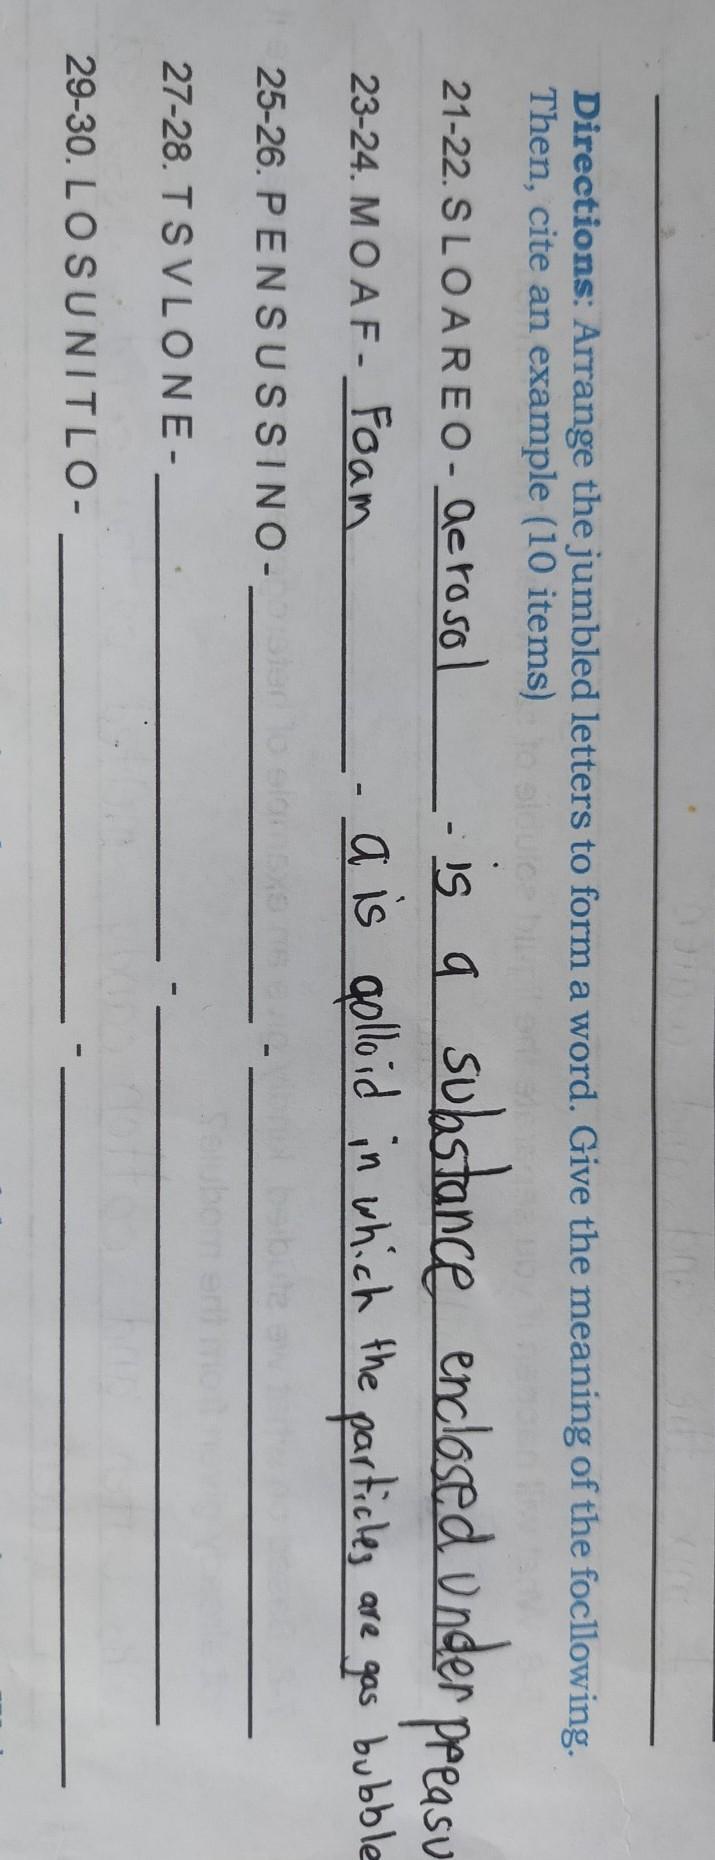 Directions: Arrange the jumbled letters to form a word. Give the meaning of the focllowing.
Then, cite an example (10 items)
21-22. S L O A R E O - aerosol - is a substance enclosed under preasu
23-24. M O A F - Foam - a is qolloid in which the particles are gas bubble
25-26. P E N S U S S I N O - -
27-28. T S V L O N E - -
29-30. L O S U N I T L O - -